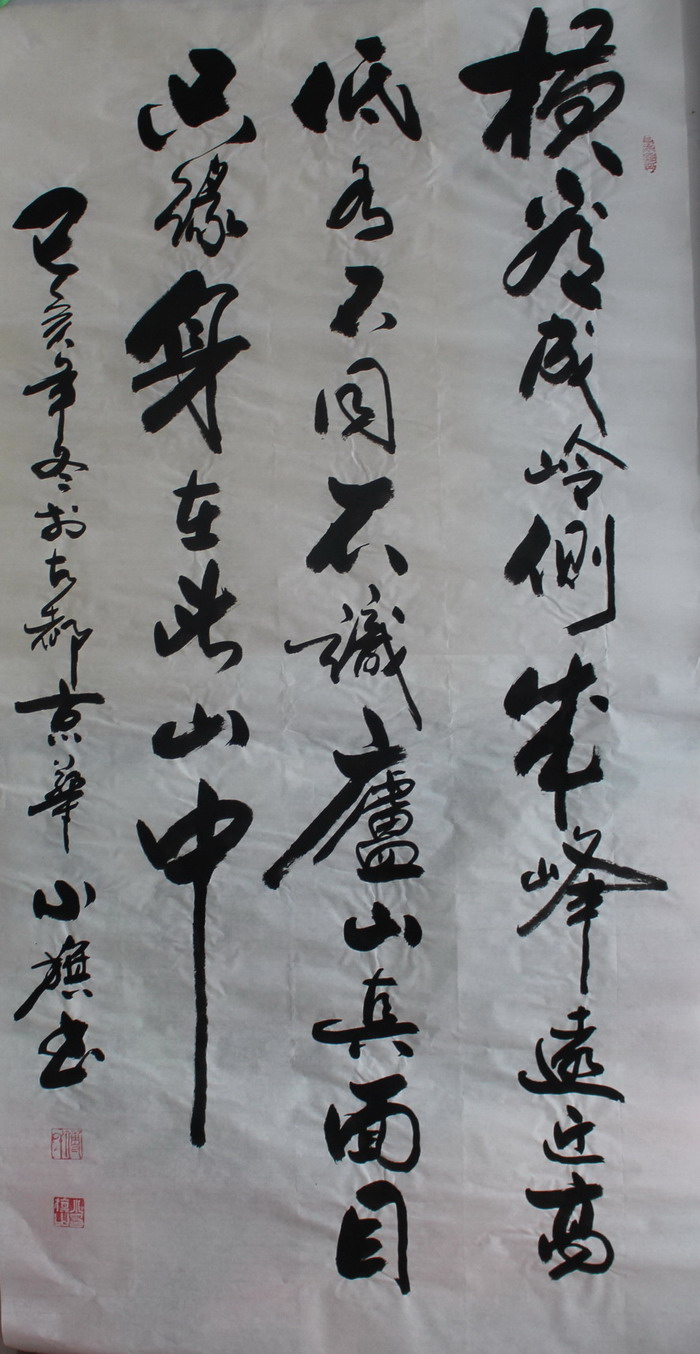 横看成岭側成峰遠近高
低各不同不識廬山真面目
只緣身在此山中
己亥年冬於古都京華小旗書